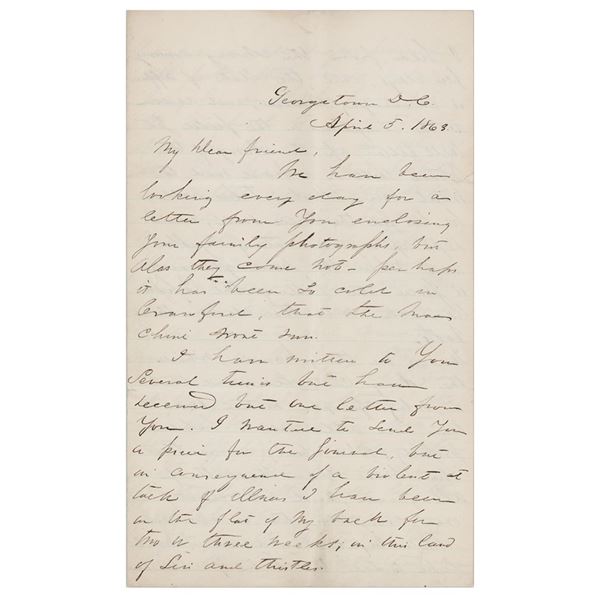 Georgetown D.C.
April 5. 1863.
My Dear friend,
We have been
looking every day for a
letter from You enclosing
Your family photographs, but
Alas they come not - perhaps
it has been so cold in
Crawford, that the Ma
chine wont run.
I have written to You
Several times but have
received but one letter from
You. I wanted to send You
a piece for the Journal, but
in consequence of a violent at
tack of illness I have been
on the flat of My back for
two or three weeks, in this land
of Sin and thistles.